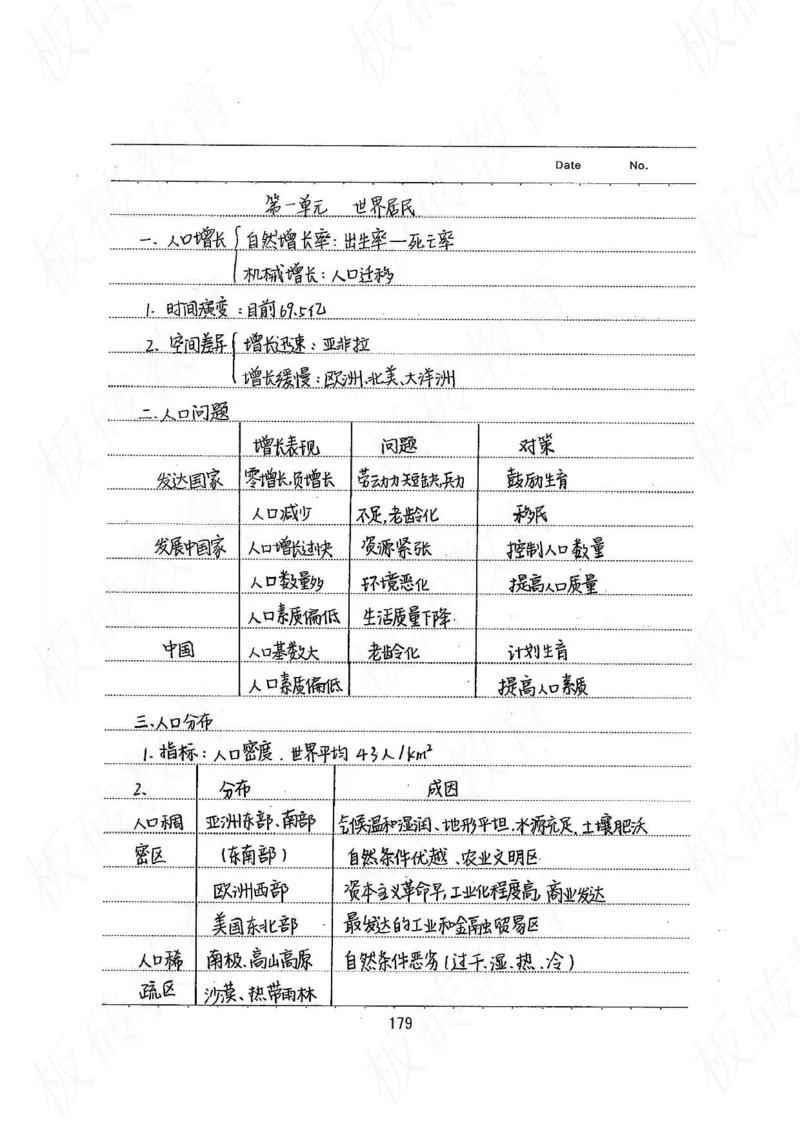 Date No.
第一单元 世界居民
一、人口增长 { 自然增长率：出生率—死亡率
机械增长：人口迁移
1. 时间演变：目前69.5亿
2. 空间差异 { 增长迅速：亚非拉
增长缓慢：欧洲、北美、大洋洲
二、人口问题
增长表现 问题 对策
发达国家 零增长,负增长 劳动力短缺,兵力 鼓励生育
人口减少 不足,老龄化 移民
发展中国家 人口增长过快 资源紧张 控制人口数量
人口数量多 环境恶化 提高人口质量
人口素质偏低 生活质量下降
中国 人口基数大 老龄化 计划生育
人口素质偏低 提高人口素质
三、人口分布
1. 指标：人口密度．世界平均 43人/km²
2、 分布 成因
人口稠 亚洲东部、南部 气候温和湿润、地形平坦、水源充足、土壤肥沃
密区 (东南部) 自然条件优越、农业文明区
欧洲西部 资本主义革命早,工业化程度高,商业发达
美国东北部 最发达的工业和金融贸易区
人口稀 南极、高山高原 自然条件恶劣(过干、湿、热、冷)
疏区 沙漠、热带雨林
179
板砖教育